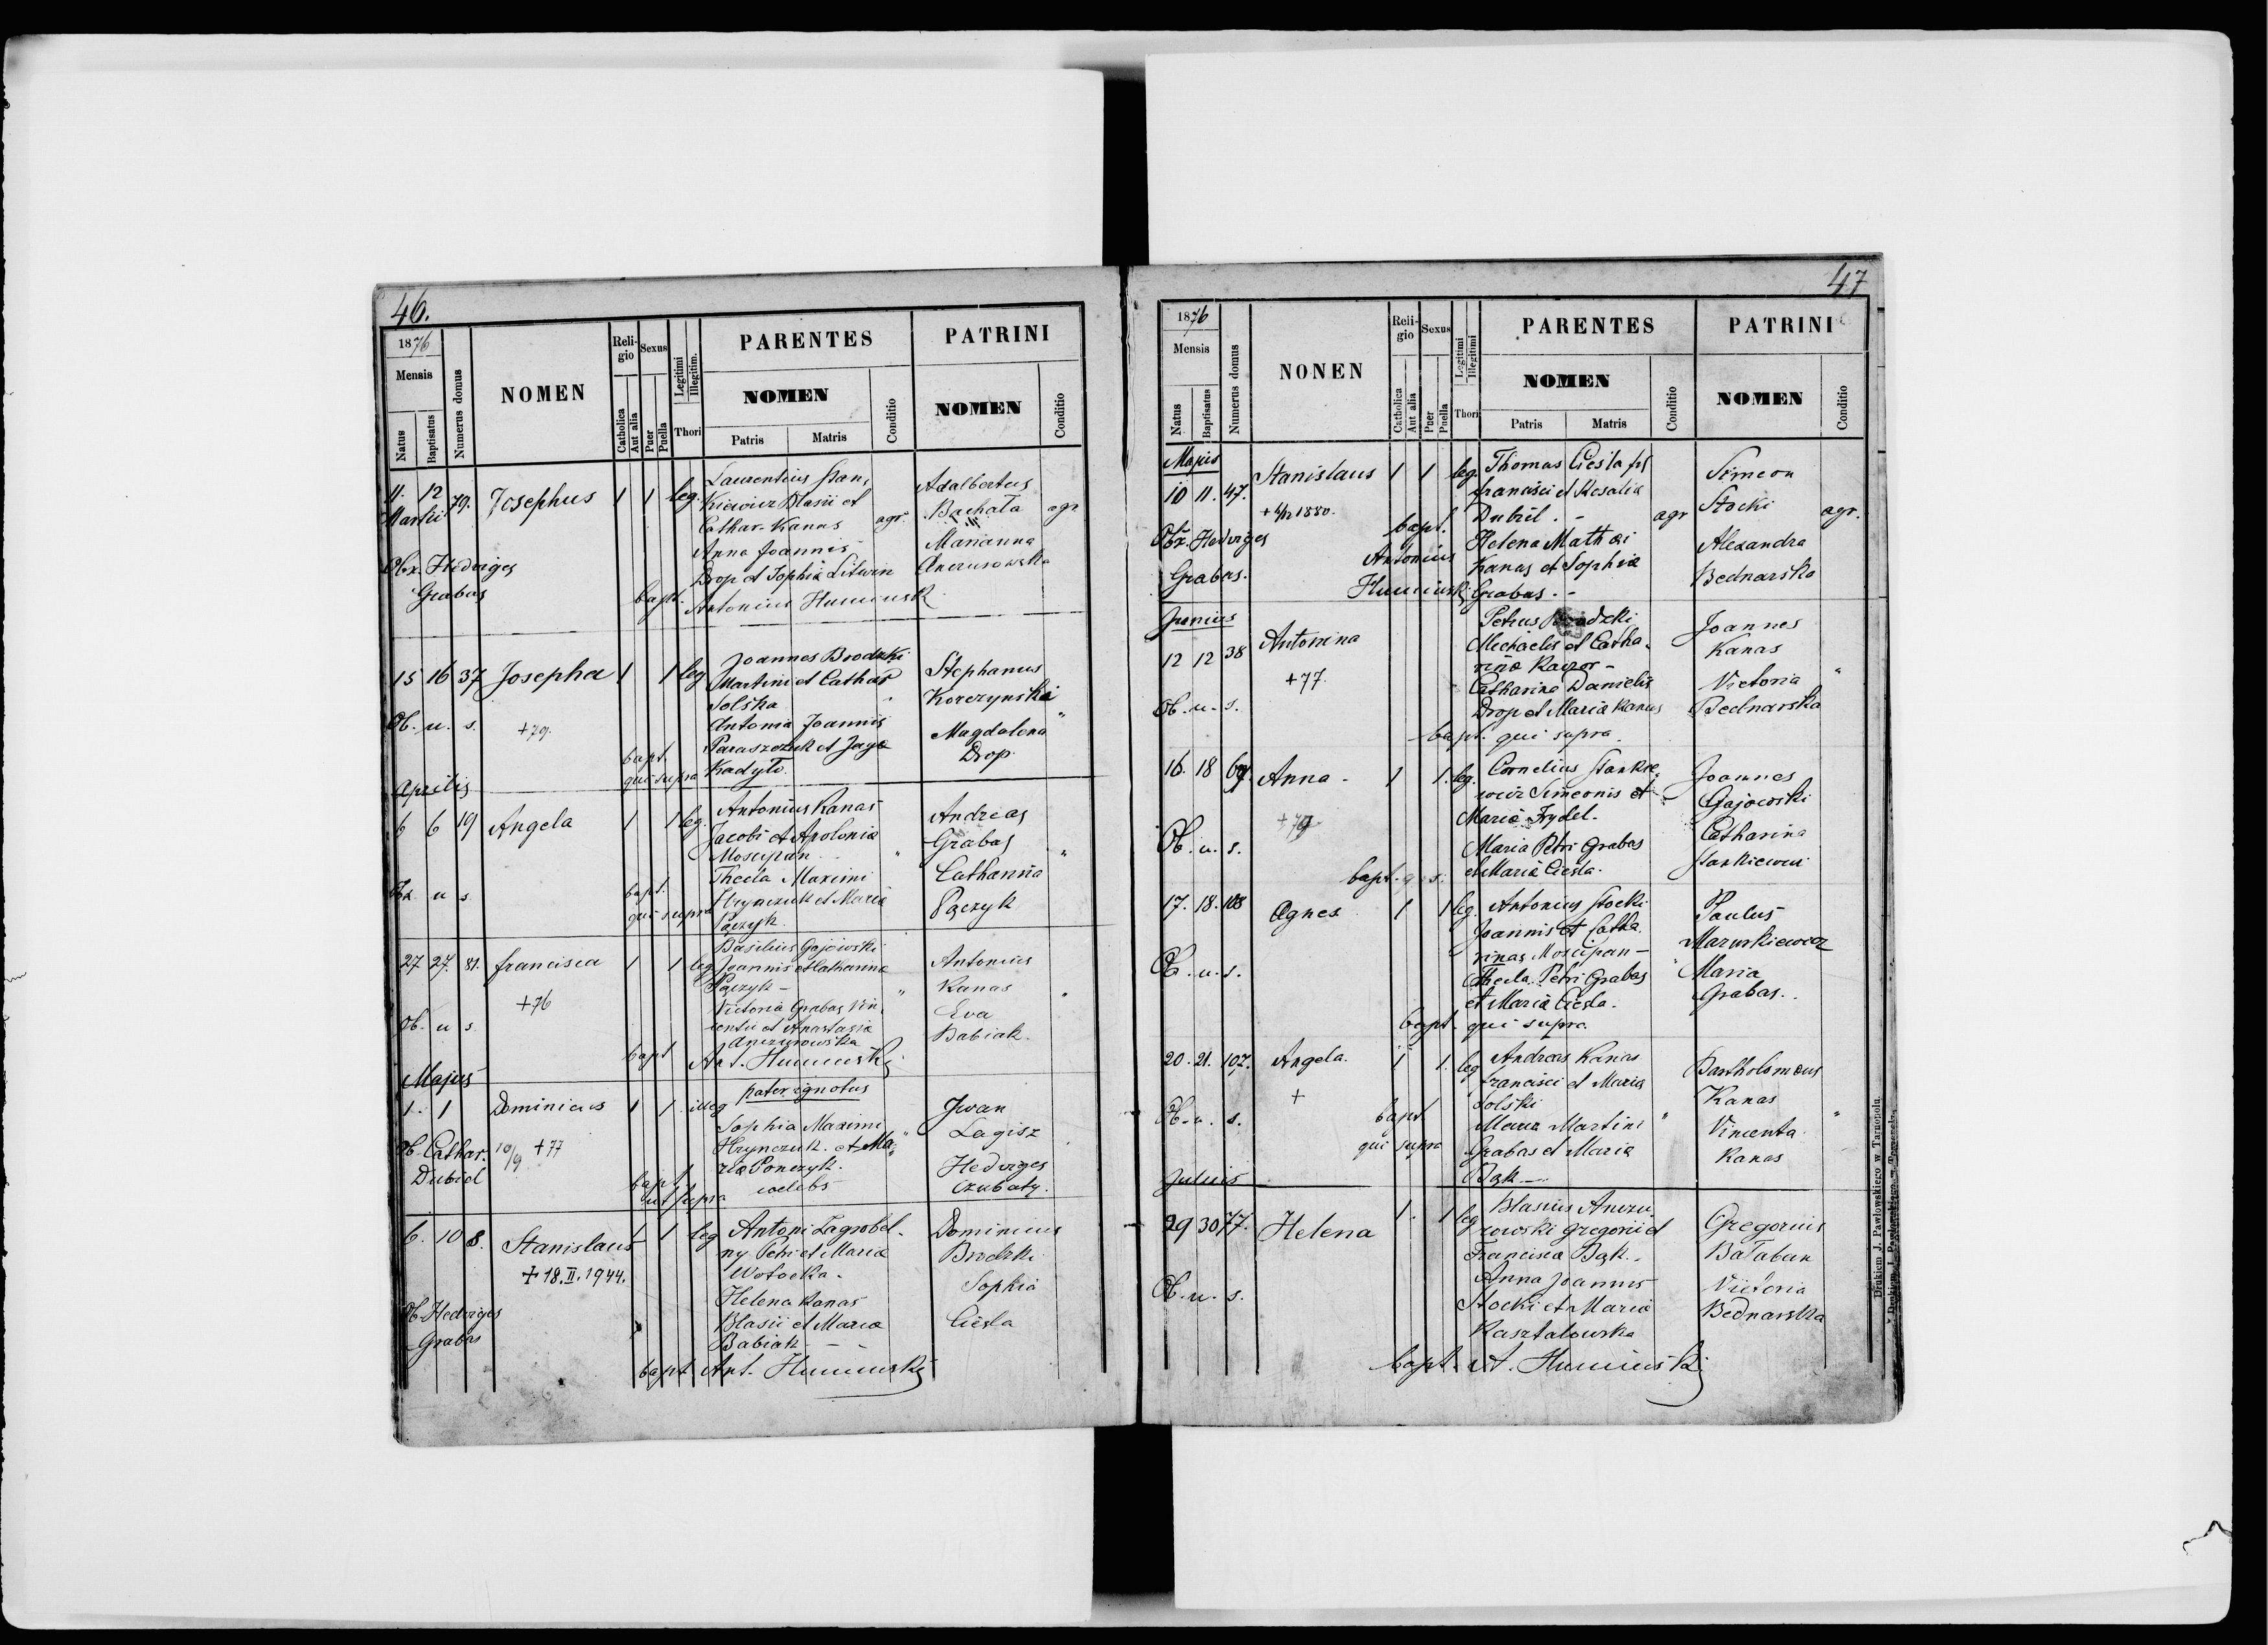 46.
1876
Mensis
Natus
Baptisatus
Numerus domus
NOMEN
Reli-
gio
Catholica
Aut alia
Sexus
Puer
Puella
Legitimi
Illegitim.
Thori
PARENTES
NOMEN
Patris
Matris
Conditio
PATRINI
NOMEN
Conditio
11. 12 79. Josephus 1 1 leg.
Martii
Laurentius Stan,
kiewicz Blasii et
Cathar. Kanas agr.
Anna Joannis
Drop et Sophia Litwin
Adalbertus
Bachata agr
Marianna
Obx. Hedviges
Grabas
bapt. Antonius Humiński
15 16 37 Josepha 1 1 leg
Joannes Brodzki
Martini et Cathar
Solska
Antonia Joannis
Paraszczuk et Jaga
Kadyło.
Stephanus
Korczynski
Magdalena
Drop.
Ob. u. s. +79.
bapt.
qui supra
Aprilis
6 6 19 Angela 1 1 leg.
Antonius Kanas
Jacobi et Apolonia
Moscipan
Thecla Maximi
Hrynczuk et Maria
Pączyk.
Andreas
Grabas
Catharina
Pączyk
Obx u s
bapt.
qui supra
27 27. 81. francisca 1 1 leg
Basilius Gajowski
Joannis et Catharina
Pączyk -
Victoria Grabas Vin,
centii et Anastasia
Anczurowska
Antonius
Kanas
Eva
Babiak.
+76
Ob. u s
bapt Ant. Humiński
Majus
1. 1 Dominicus 1 1. illeg
pater ignotus
Sophia Maximi
Hrynczuk. et Ma,
ria Ponczyk.
coelebs
Iwan
Lagisz
Hedviges
Czubaty.
Ob. Cathar. 10/9 +77
Dubiel
bapt
ut supra
6. 10 8. Stanislaus 1 1 leg
+18.II.1944.
Antoni Zagrobel-
ny Petri et Maria
Wołocka.
Helena Kanas
Blasii et Maria
Babiak -
Dominicus
Brodzki
Sophia
Cieśla
Ob. Hedviges
Grabas
bapt Ant. Humiński
47
1876
Mensis
Natus
Baptisatus
Numerus domus
NONEN
Reli-
gio
Catholica
Aut alia
Sexus
Puer
Puella
Legitimi
Illegitimi
Thori
PARENTES
NOMEN
Patris
Matris
Conditio
PATRINI
NOMEN
Conditio
Majus
10 11. 47. Stanislaus 1 1 leg.
1880.
Thomas Cieśla
francisci et Rosalia
Dubiel. - agr
Helena Mathæi
Kanas et Sophia
Grabas. -
Simeon
Stocki agr.
Alexandra
Bednarska
Obx. Hedviges
Grabas.
bapt.
Antonius
Humiński
Junius
12 12 38 Antonina
+77.
Petrus Brodzki
Michaelis et Catha,
rina Kaczor -
Catharina Danielis
Drop et Maria Kanas
Joannes
Kanas
Victoria
Bednarska
Ob. u. s.
bapt. qui supra.
16. 18 67. Anna - 1 1. leg.
+79
Cornelius Stankie,
wicz Simeonis et
Maria Frydel.
Maria Petri Grabas
et Maria Cieśla.
Joannes
Gajowski
Catharina
Stankiewicz
Ob. u. s.
bapt. q. s.
17. 18. 108 Agnes 1 1 leg.
Antonius Stocki
Joannis et Catha,
rinas Moscipan -
Thecla Petri Grabas
et Maria Cieśla.
Paulus
Mazurkiewicz
Maria
Grabas.
Ob. u. s.
bapt. qui supra
20. 21. 107. Angela. 1 1. leg
+
Andreas Kanas
francisci et Maria
Solski
Martini
Grabas et Maria
Bąk -
Bartholomæus
Kanas
Vincenta
Kanas
Ob. u. s.
bapt
qui supra
Julius
29 30 77. Helena 1. 1 leg
Blasius Anczu
rowski Gregorii et
Francisca Bąk.
Anna Joannis
Stocki et Maria
Kasztalowska
Gregorius
Bałaban
Victoria
Bednarska
Ob. u. s.
bapt. A. Humiński
Drukiem J. Pawłowskiego w Tarnopolu.